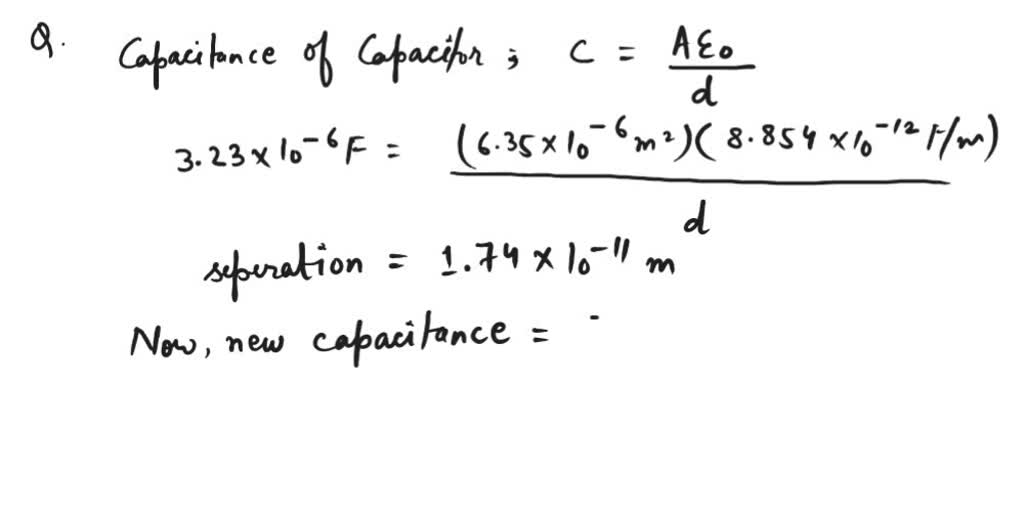 Q. Capacitance of Capacitor ; C = Aε₀ / d
3.23 × 10⁻⁶ F = (6.35 × 10⁻⁶ m²)(8.854 × 10⁻¹² F/m) / d
seperation = 1.74 × 10⁻¹¹ m
Now, new capacitance =